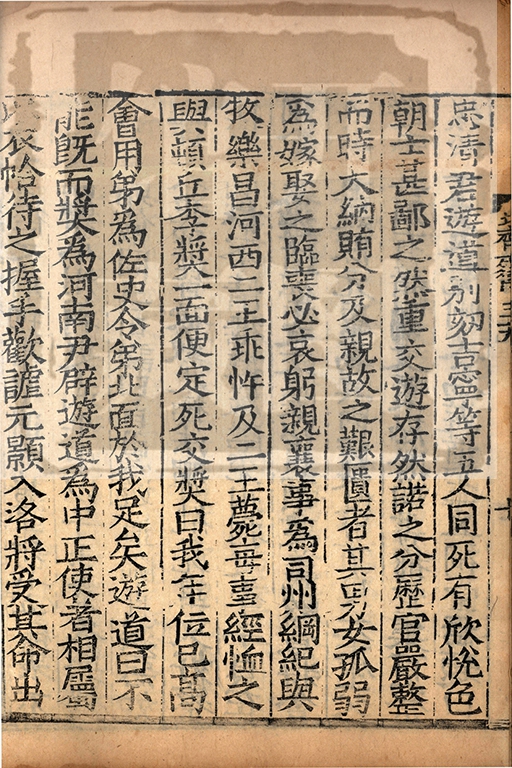 忠清君遊道別劾吉寧等五人同死有欣恱色
朝士甚鄙之然重交遊存然諾之分歷官嚴整
而時大納賄分及親故之艱匱者其男女孤弱
爲嫁娶之臨喪必哀躬親襄事爲司州綱紀與
牧樂昌河西二王乖忤及二王薨每事經恤之
與頓丘李奬一面便定死交奬曰我年位已高
會用弟爲佐史令弟北面於我足矣遊道曰不
能旣而奬爲河南尹辟遊道爲中正使者相屬
衣帢待之握手歡謔元顥入洛將受其命出